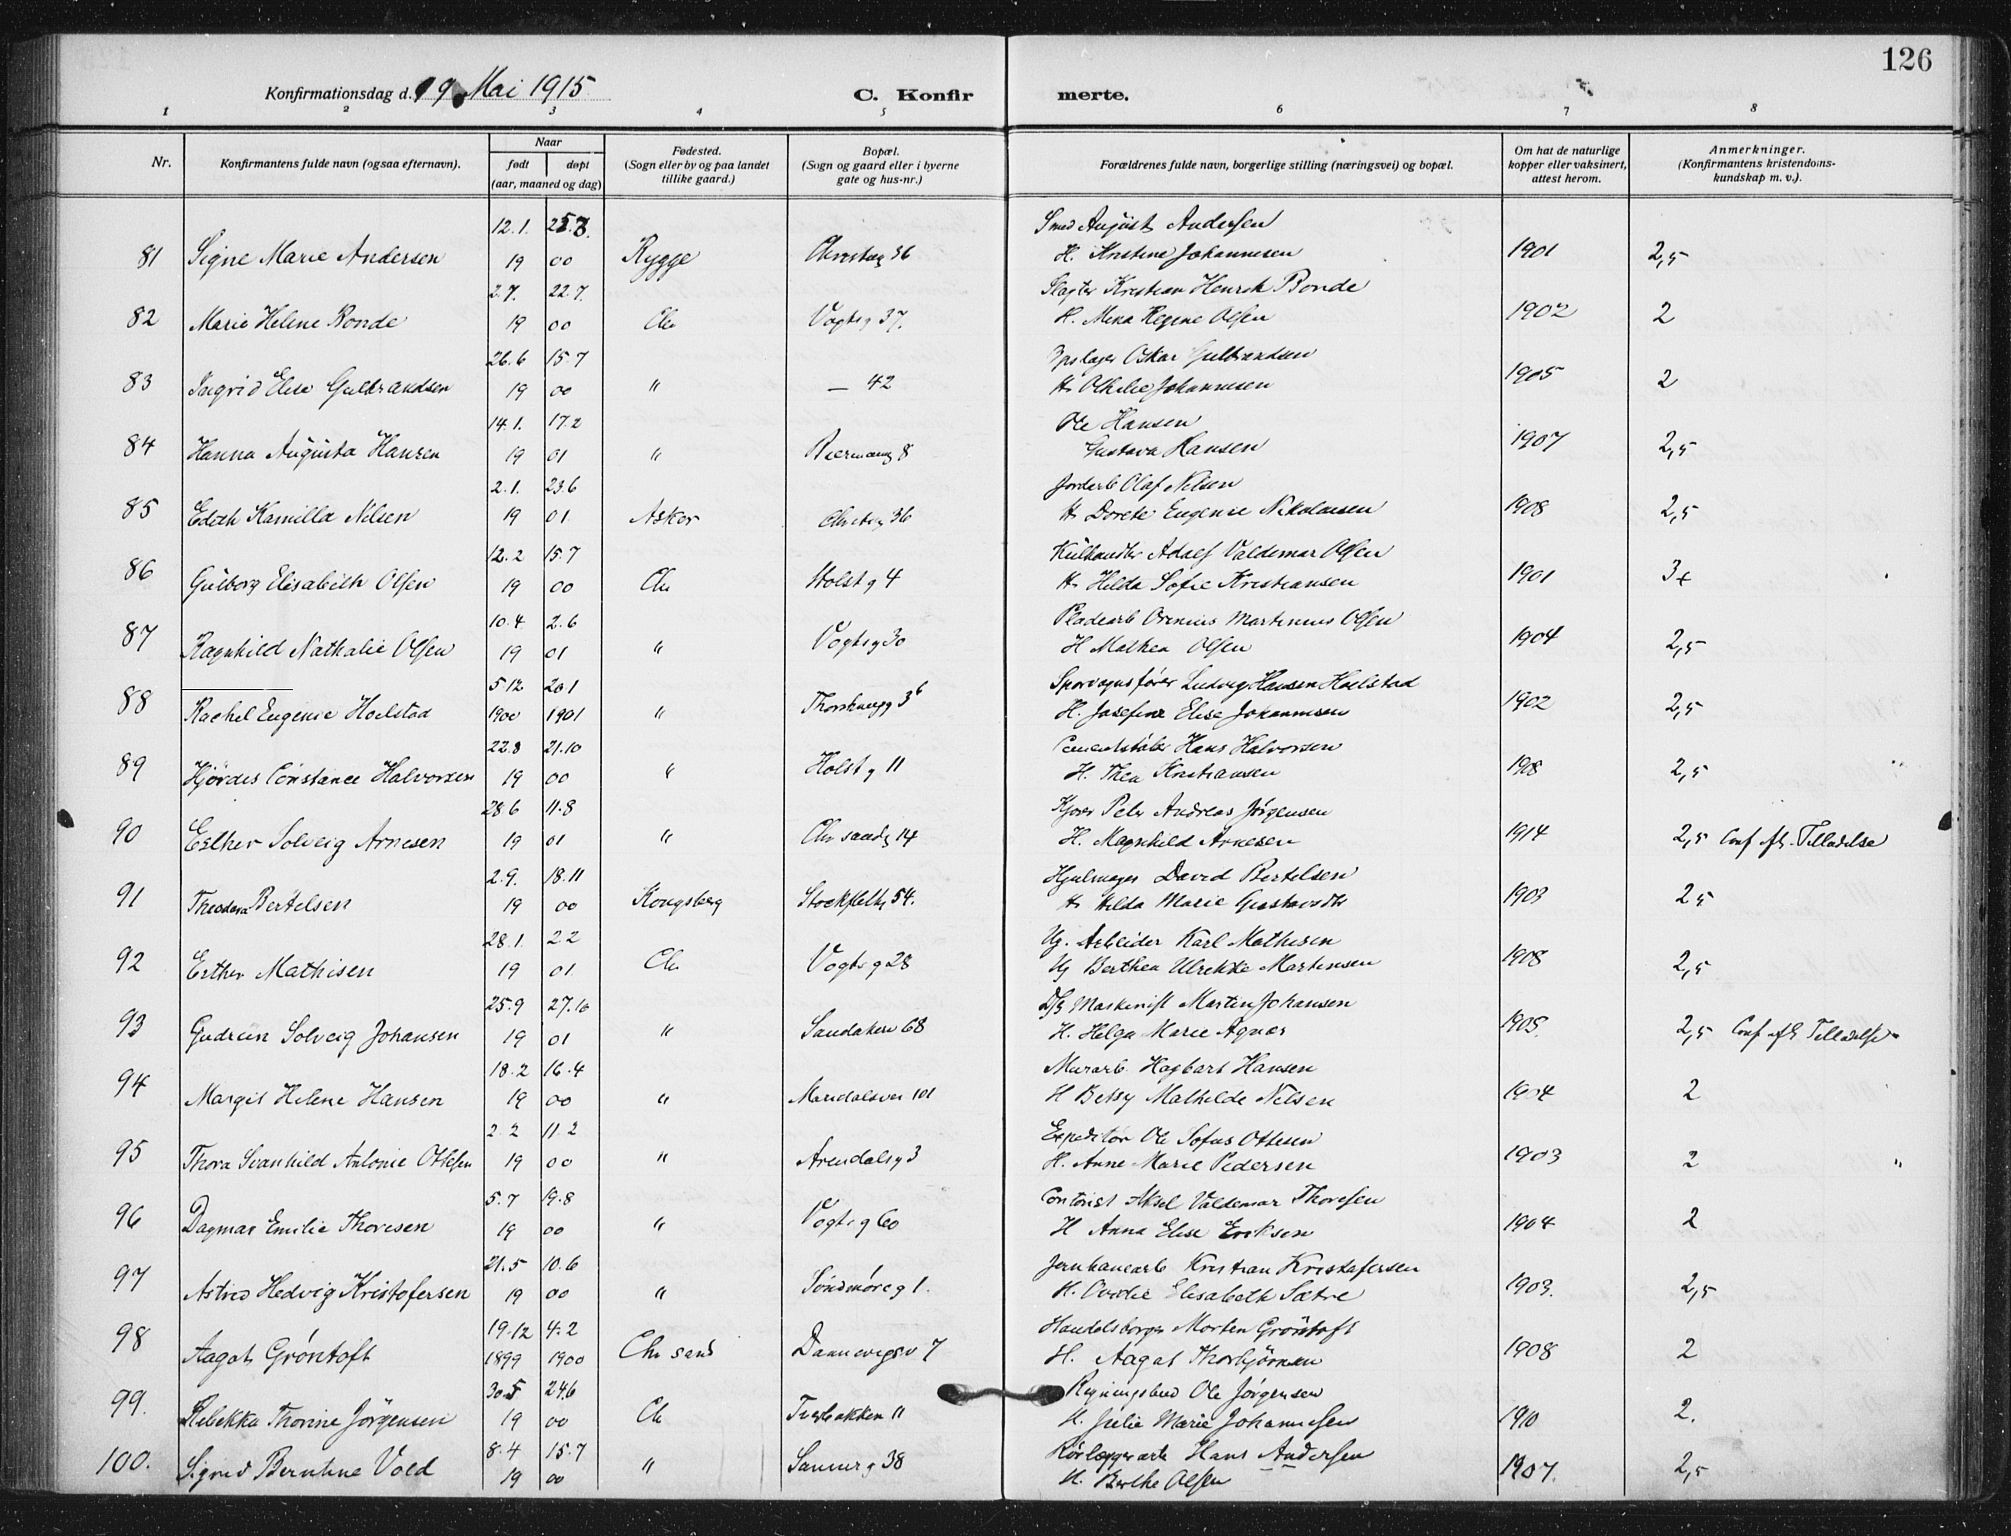 126
Konfirmationsdag d. 9 Mai 1915
C. Konfirmerte.
1 2 3 4 5 6 7 8
Nr. Konfirmantens fulde navn (ogsaa efternavn). Naar født døpt (aar, maaned og dag) Fødested. (Sogn eller by og paa landet tillike gaard.) Bopæl. (Sogn og gaard eller i byerne gate og hus-nr.) Forældrenes fulde navn, borgerlige stilling (næringsvei) og bopæl. Om hat de naturlige kopper eller vaksinert, attest herom. Anmerkninger. (Konfirmantens kristendomskundskap m. v.).
12.1. Smed August Andersen
81 Signe Marie Andersen 19 00 Rygge 36 H. Kristine Johannesen 1901 2,5
2.7. 22.7. Slagter Kristian Henrik Bonde
82 Marie Helene Bonde 19 00 Chr Vogtsg 37. H. Mina Regine Olsen 1902 2
26.6 15.7 Oskar Gulbrandsen
83 Ingrid Elise Gulbrandsen 19 00 " — 42 H. Othilie Johannesen 1905 2
14.1. 17.2 Ole Hansen
84 Hanna Augusta Hansen 19 01 " 8 Gustava Hansen 1907 2,5
2.1. 23.6 Jordarb Olaf Nilsen
85 Edith Kamilla Nilsen 19 01 Asker 36 H. Dorete Eugenie Nikolaisen 1908 2,5
12.2 15.7 Kulhandler Adolf Valdemar Olsen
86 Gulborg Elisabeth Olsen 19 00 Chr Holst g 4 H. Hilda Sofie Kristiansen 1901 3+
10.4 2.6 Martinius Olsen
87 Ragnhild Nathalie Olsen 19 01 " Vogtsg 30 H Mathea Olsen 1904 2,5
5.12 20.1 Sporvognsfører Ludvig Hansen Hoelstad
88 Rachel Eugenie Hoelstad 1900 1901 " 36 H. Josefine Elise Johannesen 1902 2,5
22.8 21.10 Hans Halvorsen
89 Hjördis Constance Halvorsen 19 00 " Holst g 11 H. Thea Kristiansen 1908 2,5
28.6 11.8 Kjører Peder Andreas Jørgensen
90 Esther Solveig Arnesen 19 01 " Chr sandg 14 H. Magnhild Arnesen 1914 2,5 Conf. eft. Tilladelse
2.9. 18.11 Hjulmager David Bertelsen
91 Theodora Bertelsen 19 00 Kongsberg Stockfletg 54. H. Hilda Marie 1903 2,5
28.1. 2.2 Ug. Arbeider Karl Mathisen
92 Esther Mathisen 19 01 Chr Vogts g 28 Ug Berthea Ulrikke Martinsen 1908 2,5
25.9 27.10 Maskinist Martin Johansen
93 Gudrun Solveig Johansen 19 01 " Sandakerv 68 H. Helga Marie Agnæs 1905. 2,5 Conf. eft. Tilladelse
18.2 16.4 Murarb. Hagbart Hansen
94 Margit Helene Hansen 19 00 " Maridalsvei 101 H Betsy Mathilde Nilsen 1904 2
2.2 11.2 Expeditør Ole Sofus Ottesen
95 Thora Svanhild Antonie Ottesen 19 00 " Arendalsg 3 H. Anne Marie Pedersen 1903 2
5.7 19.8 Contorist Aksel Valdemar Thoresen
96 Dagmar Emilie Thoresen 19 00 " Vogts g 60 H Anna Elise Eriksen 1904 2
21.5 10.6 Jernbanearb Kristian Kristofersen
97 Astrid Hedvig Kristofersen 19 00 " Söndmöre g 1. H. Ovidie Elisabeth Sætre 1903. 2,5
19.12 4.2 Handelsborger Morten Gröntoft
98 Aagot Gröntoft 1899 1900 Chr sand Dannevigsv 7 H. Aagot Thorbjörnsen 1908 2
30.5 24.6 Regningsbud Ole Jørgensen
99. Rebekka Thorine Jörgensen 19 00 Chr 11 H. Julie Marie Johannesen 1910 2.
8.4 15.7 Rörlæggerarb Hans Andersen
100. Sigrid Berntine Vold 19 00 " Sannerg 38 H. Berthe Olsen 1907. 2,5